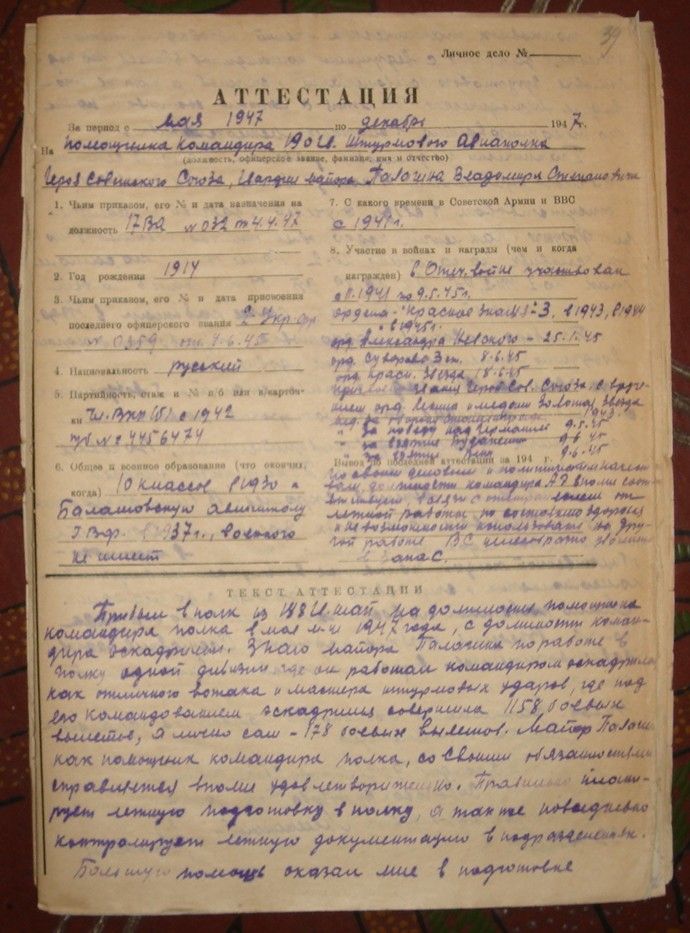 39
Личное дело №
АТТЕСТАЦИЯ
За период с мая 1947 по декабрь 1947 г.
На помощника командира 190 Штурмового Авиаполка
(должность, офицерское звание, фамилия, имя и отчество)
Героя Советского Союза, Гвардии майора Палагина Владимира Степановича
1. Чьим приказом, его № и дата назначения на
должность 17ВА №032 от 4.4.47
2. Год рождения 1914
3. Чьим приказом, его № и дата присвоения
последнего офицерского звания 2 Укр.
№ 0359 от 4.6.45
4. Национальность русский
5. Партийность, стаж и № п/б или к/карточ-
ки Чл. ВКП(б) с 1942
п/б № 4456474
6. Общее и военное образование (что окончил,
когда) 10 классов в 1930 и
Балашовскую авиашколу
ГВФ в 1937 г., военного
не имеет
7. С какого времени в Советской Армии и ВВС
с 1941 г.
8. Участие в войнах и награды (чем и когда
награжден) в Отеч. войне участвовал
1941 по 9.5.45 г.
ордена "Красное знамя" - 3, в 1943, в 1944
в 1945 г.
орд. Александра Невского - 25.1.45
орд. Суворова 3 ст. 8.6.45
орд. Красн. Звезда 18.6.45
звания Героя Сов. Союза, с вруче-
нием орд. Ленина и медали Золотая Звезда
мед. за оборону 1943
" за победу над Германией 9.5.45
" за взятие Будапешта 9.6.45
" за взятие Вены 9.6.45
Вывод по последней аттестации за 194 г.
по своим деловым и политическим качест-
вам, должности командира АЭ вполне соот-
ветствует, в связи с отстранением от
летной работы, по состоянию здоровья
и невозможности использовать на дру-
гой работе ВС целесообразно уволить
в запас.
ТЕКСТ АТТЕСТАЦИИ
Прибыл в полк из на должность помощника
командира полка в мае м-це 1947 года, с должности коман-
дира эскадрильи. Знаю майора Палагина по работе в
полку одной дивизии где он работал командиром эскадрильи
как отличного вожака и мастера штурмовых ударов, где под
его командованием эскадрилья совершила 1158 боевых
вылетов, а лично сам - 178 боевых вылетов. Майор Палагин
как помощник командира полка, со своими обязанностями
справляется вполне удовлетворительно. Правильно плани-
рует летную подготовку в полку, а также повседневно
контролирует летную документацию в подразделениях.
Большую помощь оказал мне в подготовке